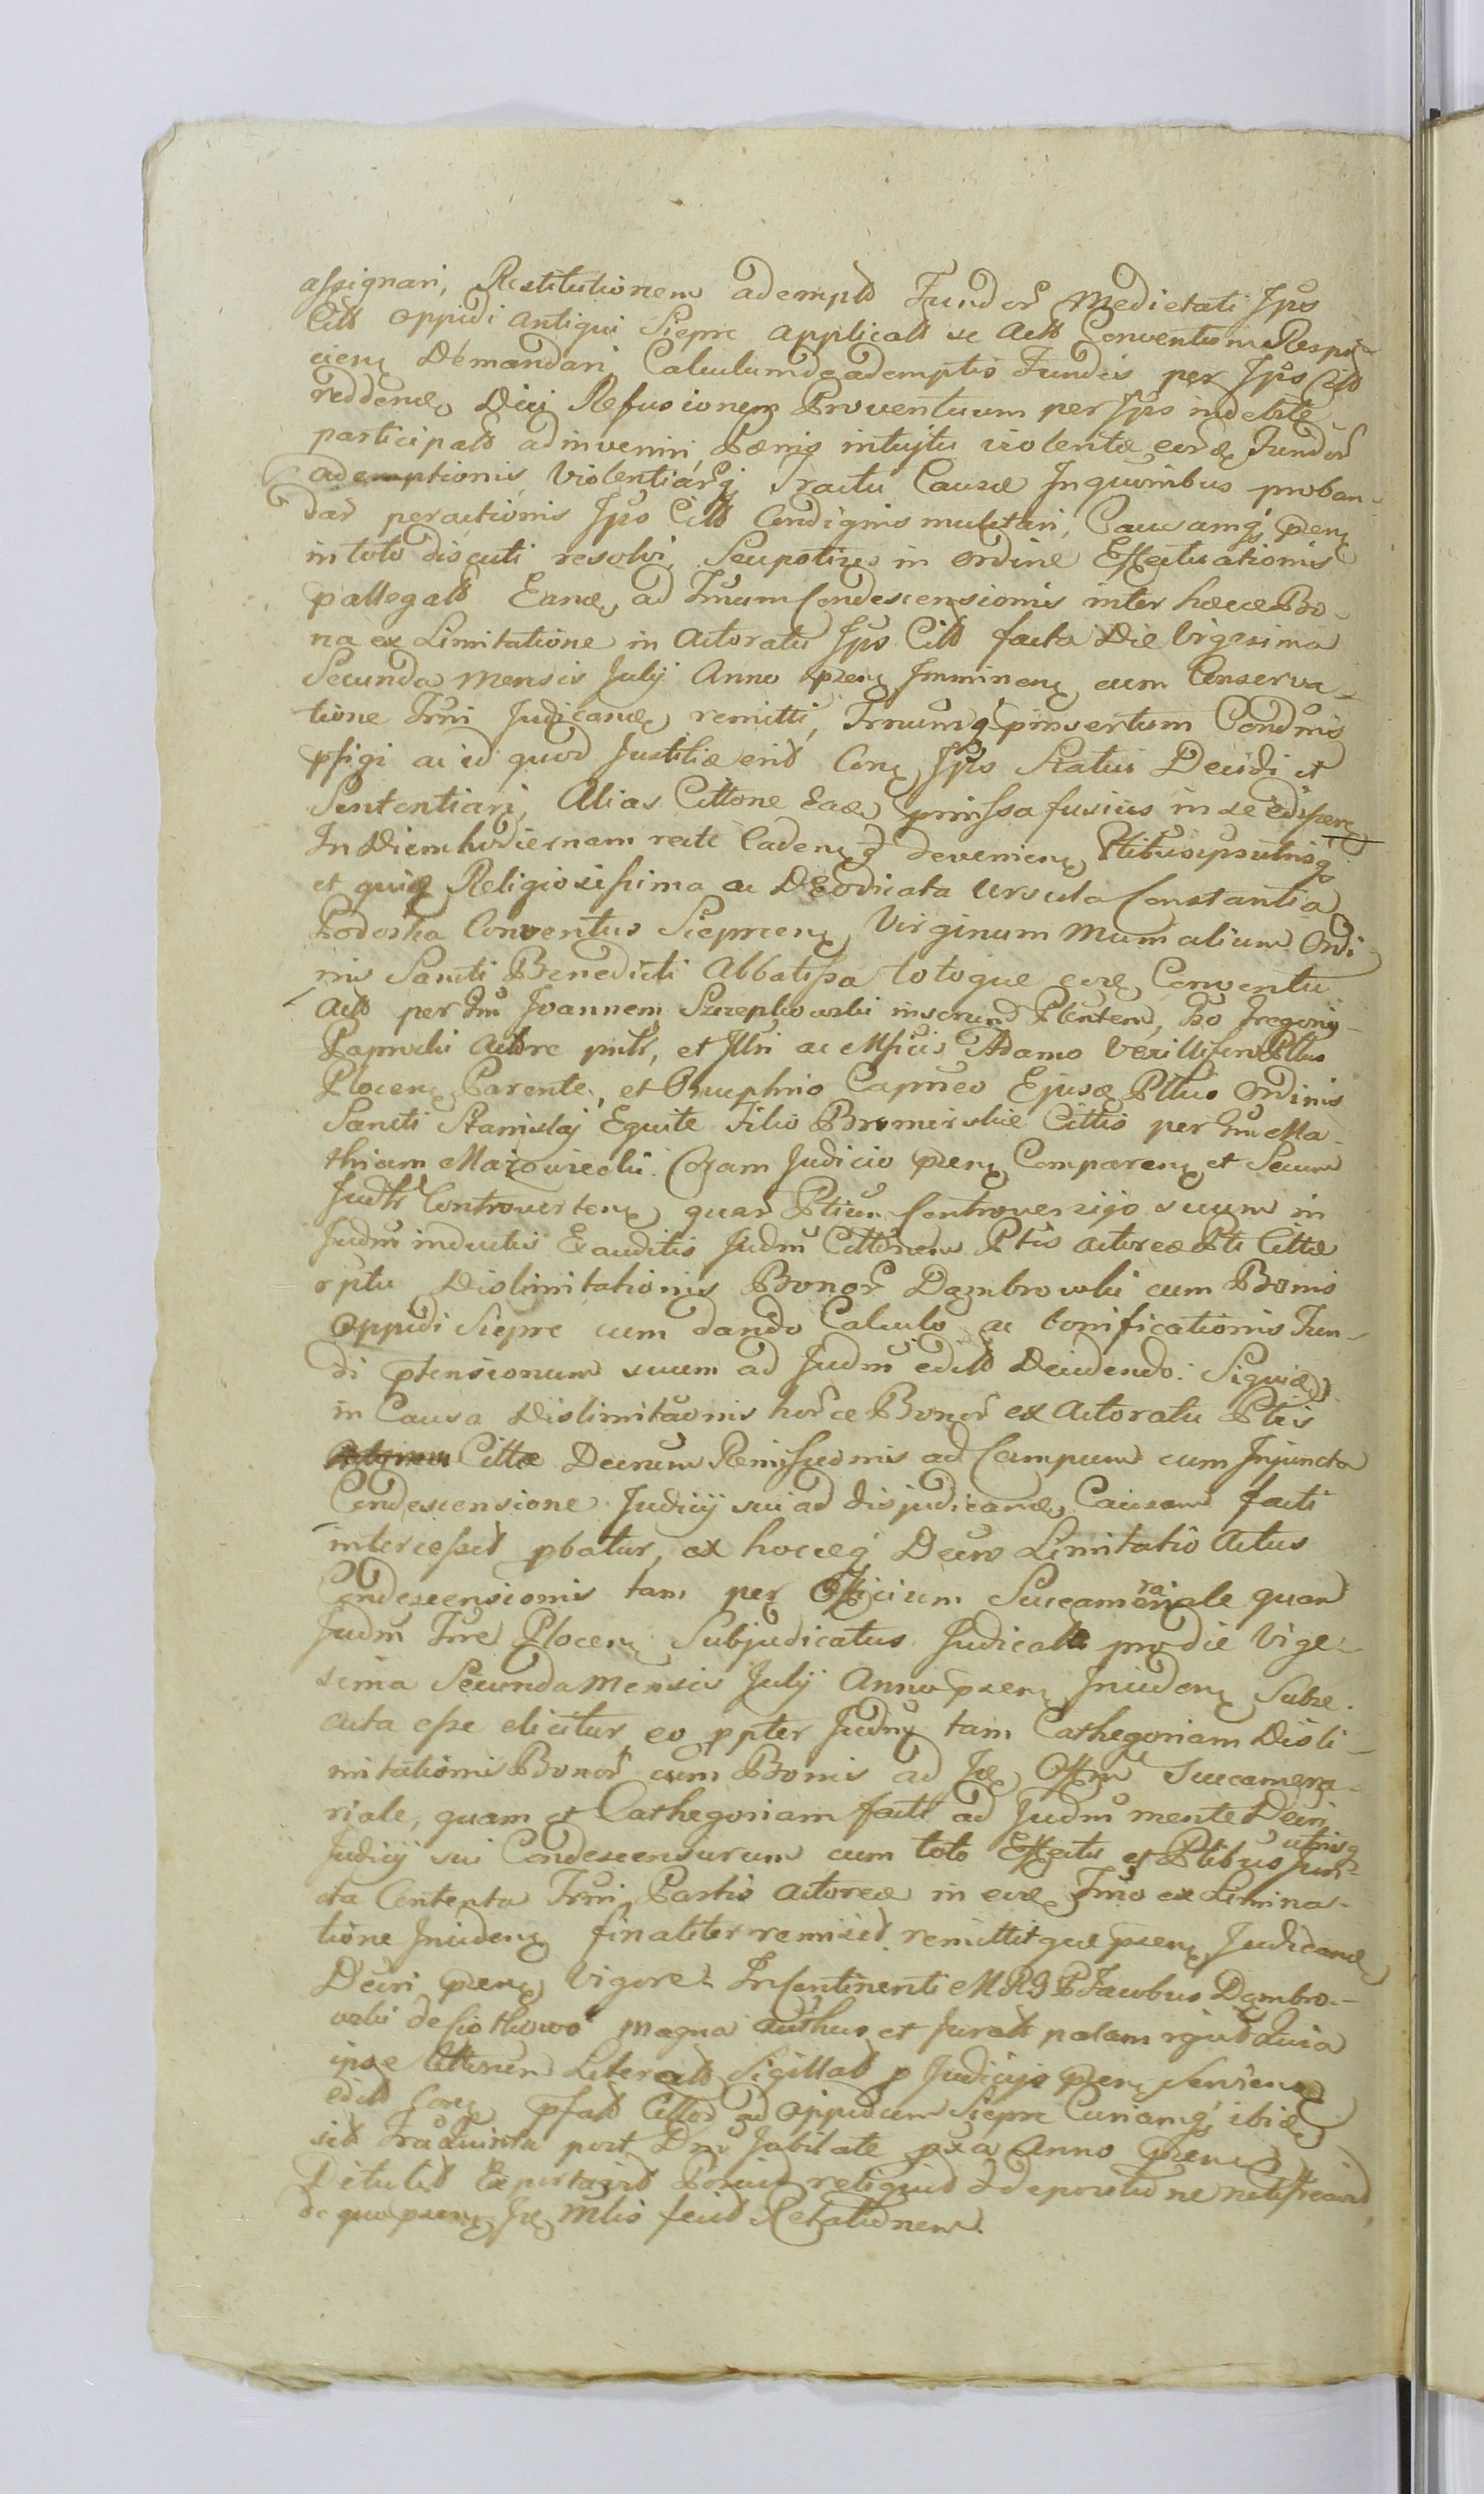 assignari, Restitutionem ademptō Fundoř Medietati Jpo
Citō Oppidi antiqui Sieprc applicatō se Actō Conventum Respi-
cien Demandari, Calculum de ademptis Fundis per Jpo Citō
reddend Dici Refusionem Proventuum per Jpo indebite
participatō adinveniri, Pœnis intuitu violentæ eord Fundoř
ademptionis Violentiarq Tractu Causæ Inquiribus proban-
dař peractionis Jpo Citō Condignis mulctari, Causamq pren
in toto discuti resolvi, Seu potius in ordine Effectuationis
pallegatō Eand ad Tmum Condescensionis inter hæcce Bo-
na ex Limitatione in Actoratu Jpo Citō facta Die Vigesima
Secunda Mensis Julij Anno pren Imminen cum Conserva-
tione Tmi Judicand remitti, Tmumq pinsertum Condnis
pfigi ac id quod Justitiæ erit Con Jpo Statui Decidi et
Sententiari, Alias Cittone Ead præmissa fusius in se
In Diem hodiernam recte Caden deveniен Ptibus ipsis utrisq
et quid Religiosissima ac Deodicata Ursula Constantia
Podoska Conventus Siepрcen Virginum Monialium Ordi-
nis Sancti Benedicti Abbatissa totoque eod Conventu
Actō per Gnm Joannem Szczepkowski Plentem, Gso Gregorio
Paprocki Actore, et Jllri ac Mficis Adamo Vexillifero Pltus
Plocen Parente, et Onuphrio Capneo Ejusd Pltus Ordinis
Sancti Stanislaj Equite Filio Bromirskie Cittis per Gnm Ma-
thiam Mazowiecki. Coram Judicio pren Comparen et Secum
Judtr Controverten, quař Ptium Controversijs suum in
Judm inductis Exauditis Judm Cittonem Ptis actoreæ Pti Cittæ
rptu Dislimitationis Bonoř Dąmbrowski cum Bonis
Oppidi Sieprc cum dando Calculo ac bonificationis Fun-
di ptensionum suum ad Judm editō Decidendo. Siquid
in Causa Dislimitaonis hořce Bonoř ex Actoratu Ptis
Cittæ Decrum Remissionis ad Campum cum Injuncta
Condescensione Judicij sui ad disjudicand Causam facti
intercessit pbatur, ex hocceq Decro Limitatio Actus
Condescensionis tam per Officium Succamerariale quam
Judm Tre Plocen Subjudicatus Judicatō pro die Vige-
sima Secunda Mensis Julij Anno pren Inciden Subse-
cuta esse dicitur, eo ppter Judm tam Cathegoriam Disli-
mitationis Bonoř cum Bonis ad Jd Offm Succamera-
riale, quam et Cathegoriam facti ad Judm mente Decri
Judicij sui Condescensurum cum toto Effectu et Ptibus utrisq Jun-
cta Contenta Tmi, Partis Actoreæ in eod Tmo ex Limita-
tione Inciden finaliter remisit remittitque pren Judicand
Decri pren Vigore. In Continenti MRS P Jacobus Dąmbro-
wski de Siothowo Magna Authus et Jurat palam rgnōt Quia
ipse Cittonem Literatō Sigillatō p Judicijs pren Servien
editō Con pfatō Cittos ad Oppidum Sieprc Curiamq ibid
sit Fra Quinta post Dm Jubilate pxa Anno pren
Detulit Exportavit Posuit reliquit Ddepositione notificavit,
de quo pren Jd Mlis fecit Relationem.